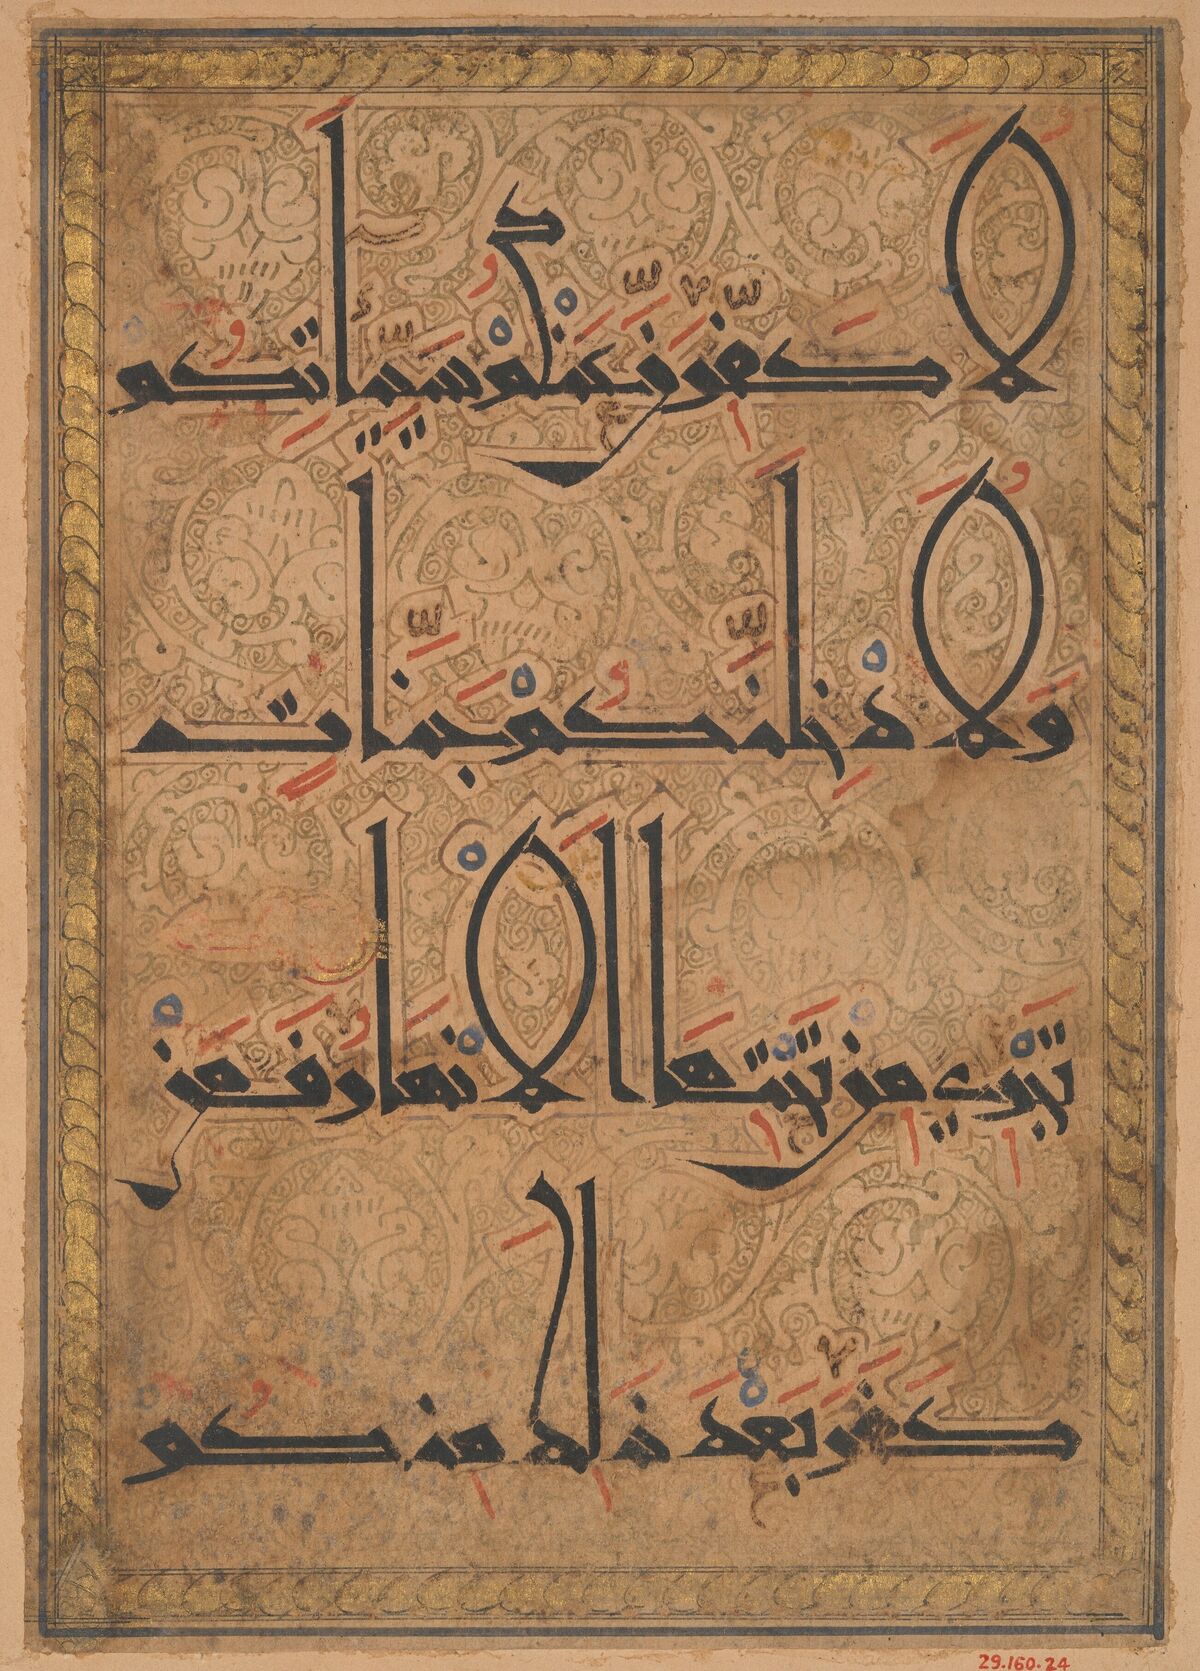 لَأُكَفِّرَنَّ عَنْكُمْ سَيِّئَاتِكُمْ
وَلَأُدْخِلَنَّكُمْ جَنَّاتٍ
تَجْرِي مِنْ تَحْتِهَا الْأَنْهَارُ فَمَنْ
كَفَرَ بَعْدَ ذَلِكَ مِنْكُمْ
29.160.24